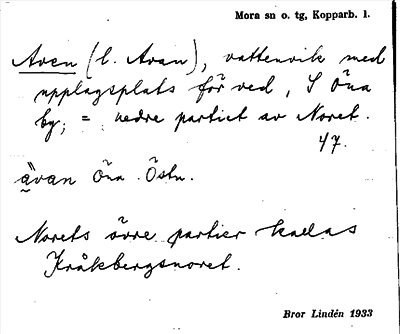 Mora sn o. tg, Kopparb. l.
Aven (l. Avan), vattenvik med
upplagsplats för ved, S Öna
by; = nedre partiet av Noret.
47.
ävan Öna. Östn.
Norets övre partier kallas
Kråkbergsnoret.
Bror Lindén 1933